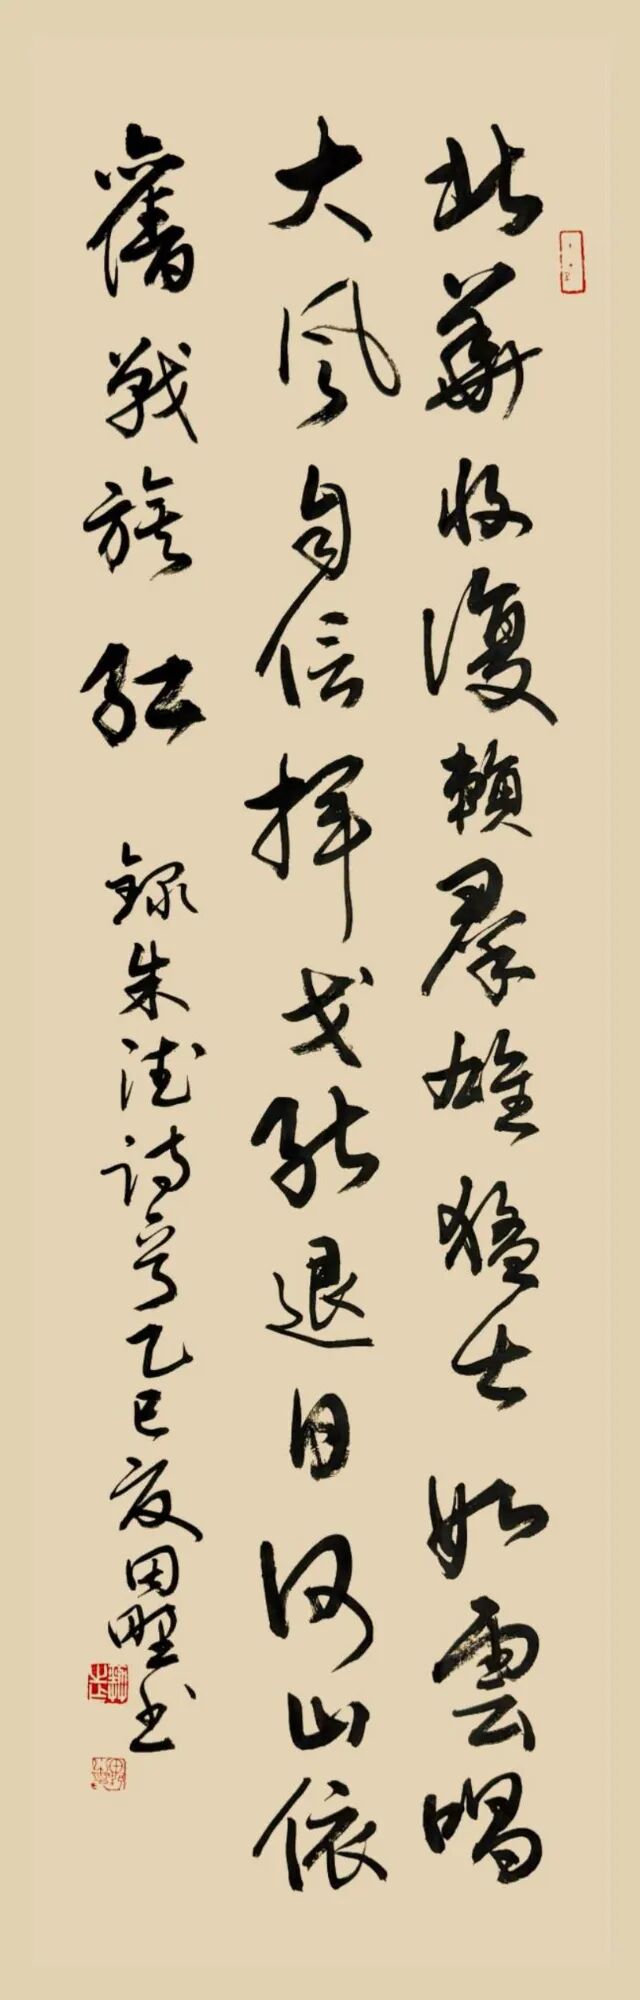 北華收復賴羣雄猛士如雲唱
大风自信揮戈能退日河山依
舊戰旗紅
錄朱德詩一首乙巳夏田野书